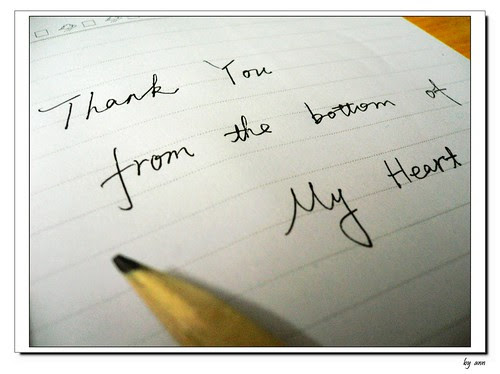 Thank You
from the bottom of
My Heart
by ann